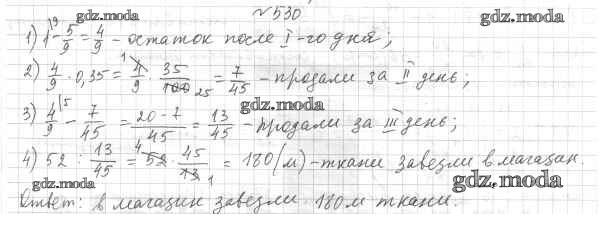 №530
gdz.moda
1) 1⁹ - 5/9 = 4/9 - остаток после I-го дня;
2) 4/9 · 0,35 = ¹4/9 · 35/100 25 = 7/45 - продали за II день;
gdz.moda
3) 4/9 ⁵ - 7/45 = 20-7/45 = 13/45 - продали за III день;
4) 52 : 13/45 = ⁴52 · 45/13 1 = 180 (м) - ткани завезли в магазин.
gdz.moda gdz.moda
Ответ: в магазин завезли 180 м ткани.